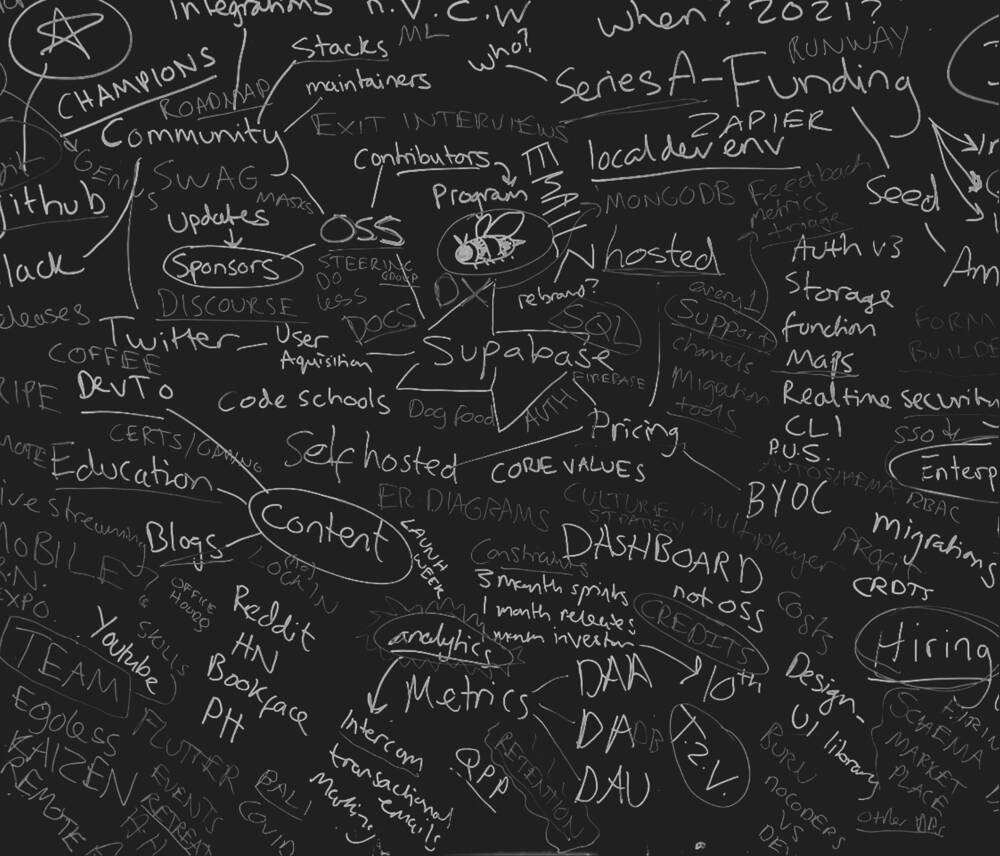 Integrations
n.V.C.W
when? 2021?
Stacks
ML
who?
RUNWAY
CHAMPIONS
ROADMAP
maintainers
Series A-Funding
Community
EXIT INTERVIEWS
ZAPIER
Contributors
local dev env
SWAG
MASKS
Program
EMAIL
MONGODB
Feedback
metrics
triage
Seed
github
Updates
OSS
hosted
Auth v3
Sponsors
STEERING
GROUP
DO
less
DX
rebrand?
every 1
Storage
DISCOURSE
DOCS
SQL
Support
function
FORM
BUILDE
Twitter
User
Aquisition
Supabase
channels
Maps
COFFEE
FIREBASE
Migration
tools
Realtime security
DevTo
Code schools
Dog food
AUTH
Pricing
CLI
SSO
P.U.S.
CERTS/
Education
Self hosted
CORE VALUES
Enterp
AUTOSCHEMA
RBAC
BYOC
ER DIAGRAMS
CULTURE
STRATEGY
multiplayer
Content
LAUNCH
WEEK
Blogs
(no)
LOCK IN
DASHBOARD
migrations
PROFIT
MOBILE
Constraints
3 month sprints
1 month releases
CRDTS
EXPO
OFFICE
HOURS
Reddit
HN
Bookface
PH
analytics
not OSS
CREDITS
Costs
Hiring
TEAM
Youtube
SKILLS
Metrics
DAA
10th
Design
UI library
Egoless
KAIZEN
REMOTE
FLUTTER
EVENTS
RETREAT
BALI
COVID
Intercom
transactional
emails
QPP
RETENTION
DADB
DAU
T.2.V.
BURN
nocoders
VS
SCHEMA
MARKET
PLACE